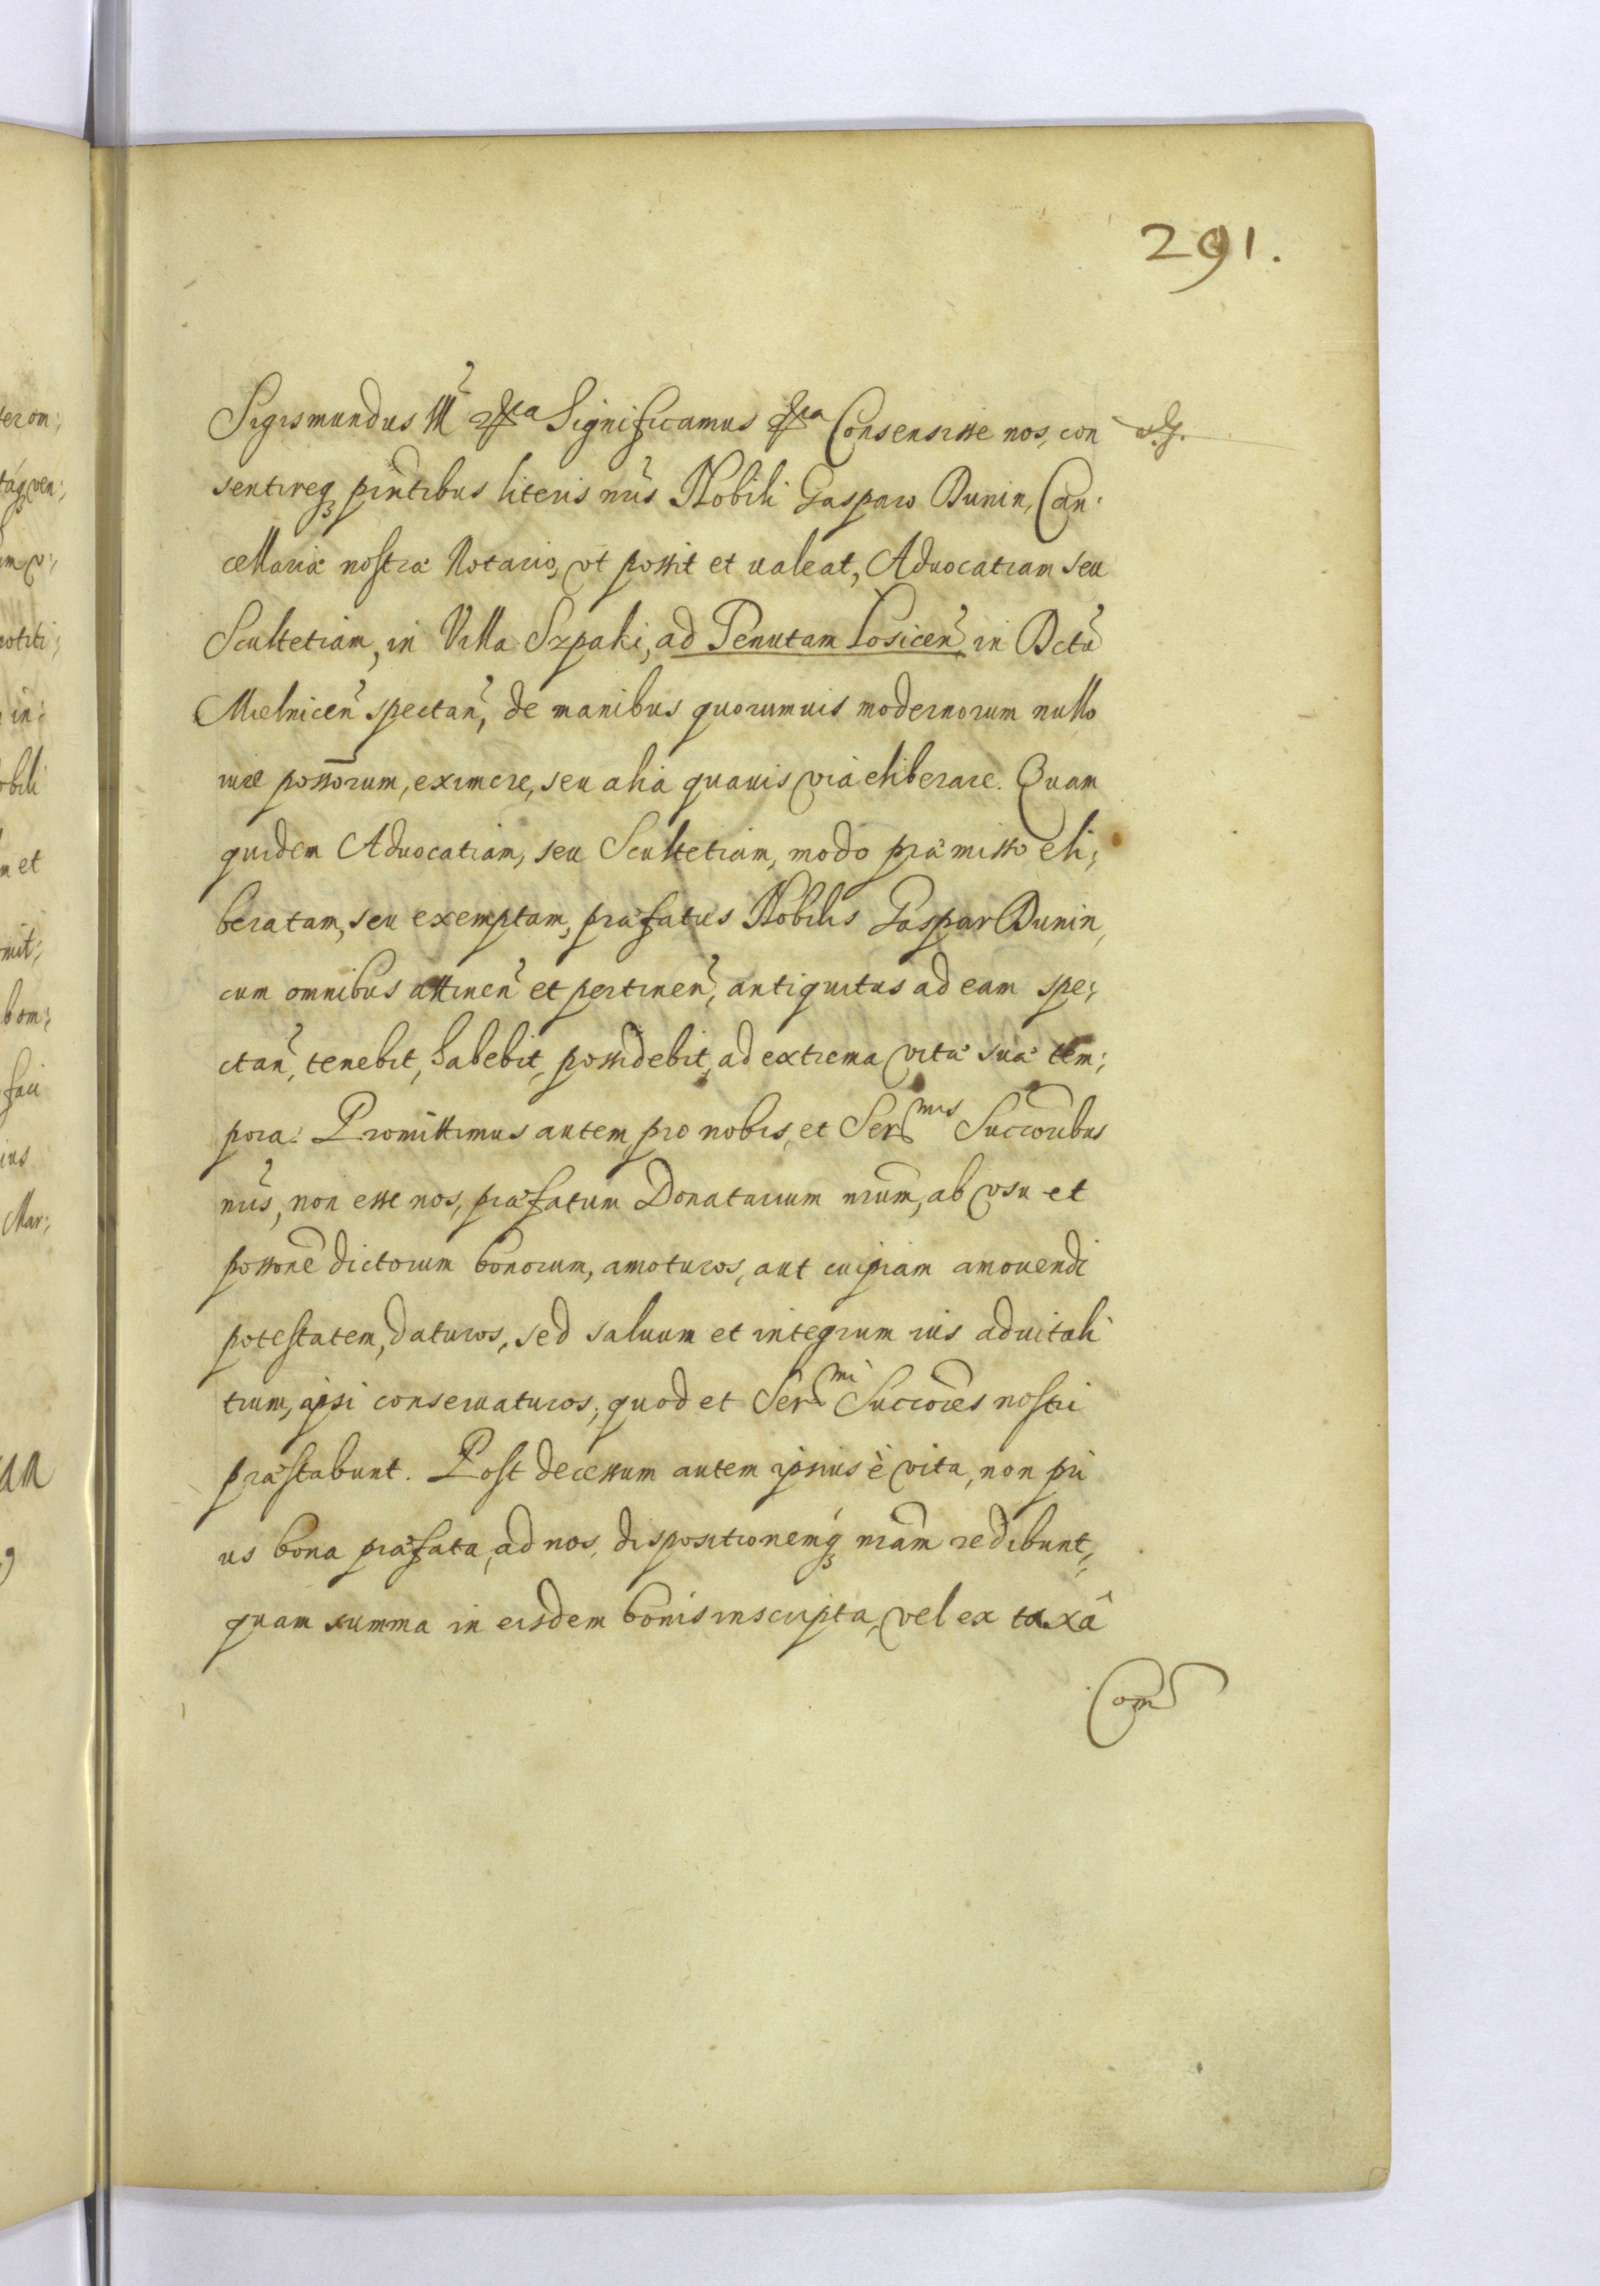 291.
Sigismundus III Significamus Consensisse nos, con
sentireq, pñtibus literis nr̃is Nobili Gasparo Dunin, Can:
cellariæ nostræ Notario, vt possit et ualeat, Aduocatiam seu
Scultetiam, in Villa Szpaki, ad Tenutam Łosiceñ in Dctũ
Mielniceñ spectañ, de manibus quorumuis modernorum nullo
iure possorum, eximere, seu alia quauis via eliberare. Quam
quidem Aduocatiam, seu Scultetiam, modo præmisso eli:
beratam, seu exemptam, præfatus Nobilis Gaspar Dunin,
cum omnibus attineñ et pertineñ, antiquitus ad eam spe:
ctañ, tenebit, habebit, possidebit, ad extrema vitæ suæ tem:
pora. Promittimus autem pro nobis, et Ser.mis Succoribus
nr̃is, non esse nos, præfatum Donatarium nrum, ab vsu et
possone dictorum bonorum, amoturos, aut cuipiam amouendi
potestatem, daturos, sed saluum et integrum ius aduitali
tium, ipsi conseruaturos, quod et Ser.mi Succores nostri
præstabunt. Post decessum autem ipsius è vita, non pri
us bona præfata, ad nos, dispositionemq, nram redibunt,
quam summa in eisdem bonis inscripta, vel ex taxâ
Com